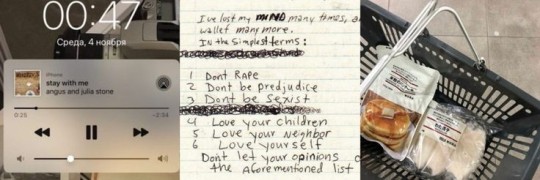 00:47
Среда, 4 ноября
iPhone
stay with me
angus and julia stone
0:25
-2:34
I've lost my MIND many times, a
wallet many more.
In the simplest terms:
1 Dont RAPE
2 Dont be predjudice
3 Dont be Sexist
4 Love your children
5 Love your neighbor
6 Love yourself
Dont let your opinions o
the aforementioned list